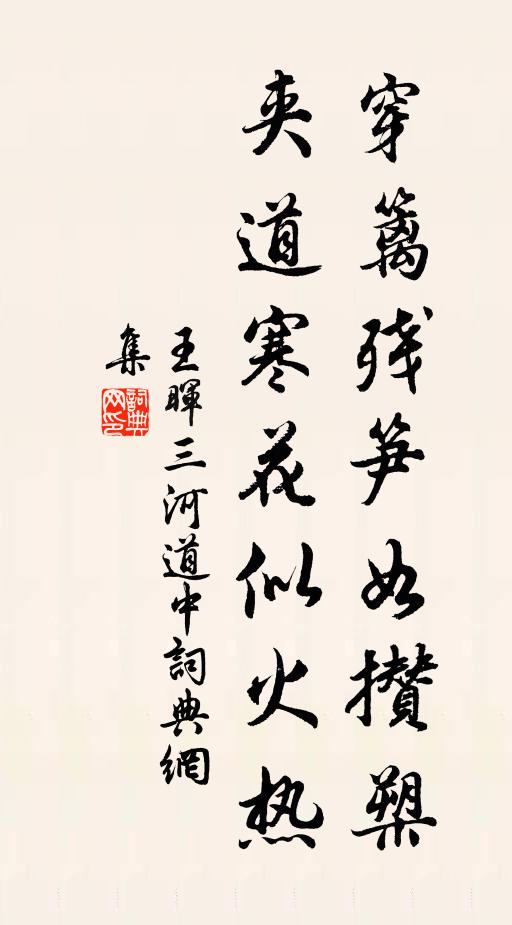 穿篱残笋如攒槊
夹道寒花似火热
王暉三河道中詞典網
集
詞典网印